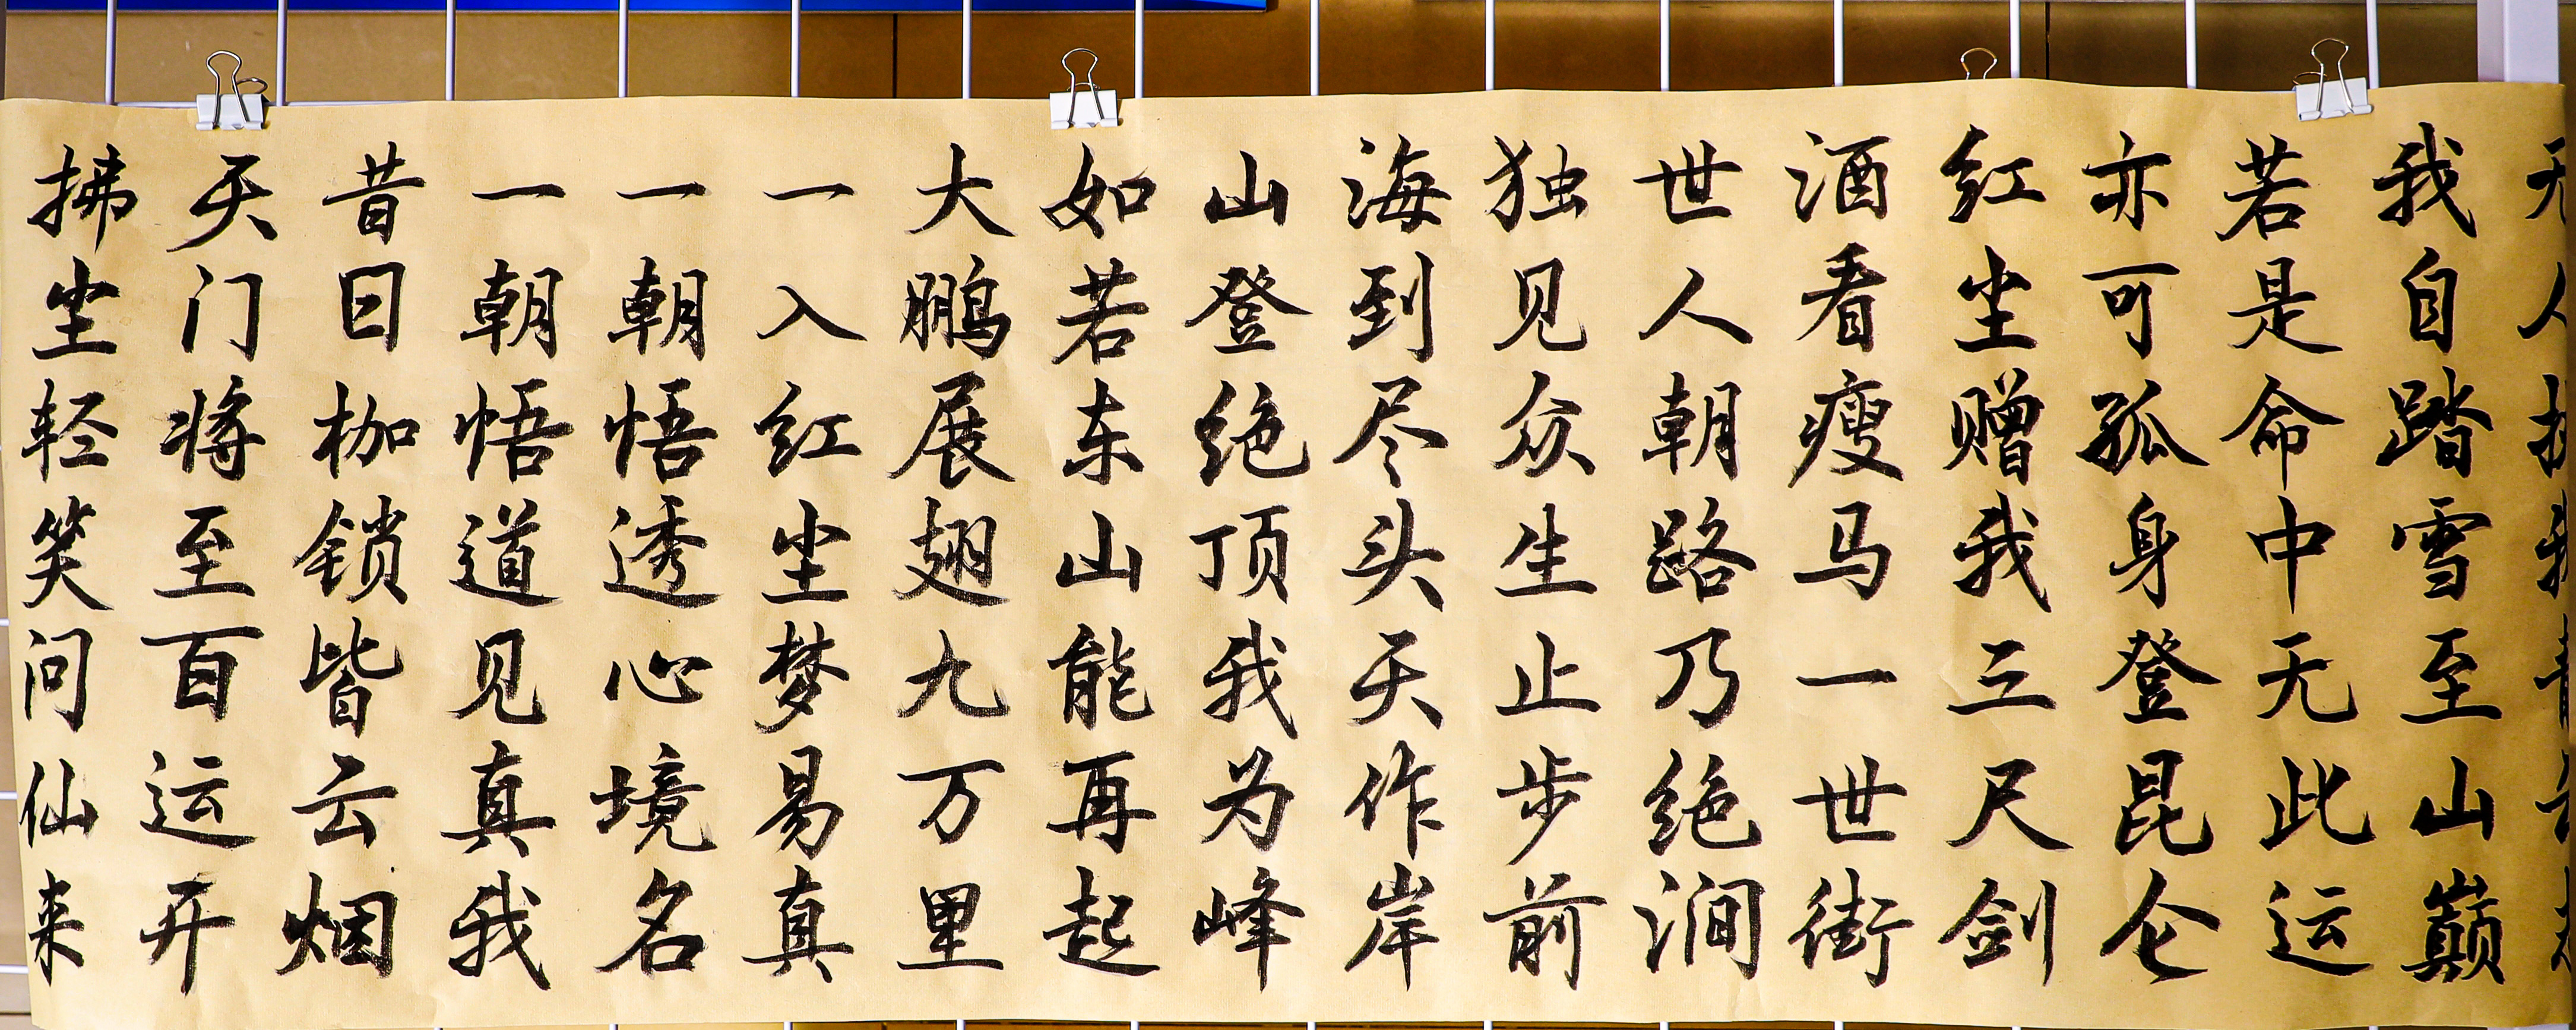 我自踏雪至山巅
若是命中无此运
亦可孤身登昆仑
红尘赠我三尺剑
酒看瘦马一世街
世人朝路乃绝涧
独见众生止步前
海到尽头天作岸
山登绝顶我为峰
如若东山能再起
大鹏展翅九万里
一入红尘梦易真
一朝悟透心境名
一朝悟道见真我
昔日枷锁皆云烟
天门将至百运开
拂尘轻笑问仙来